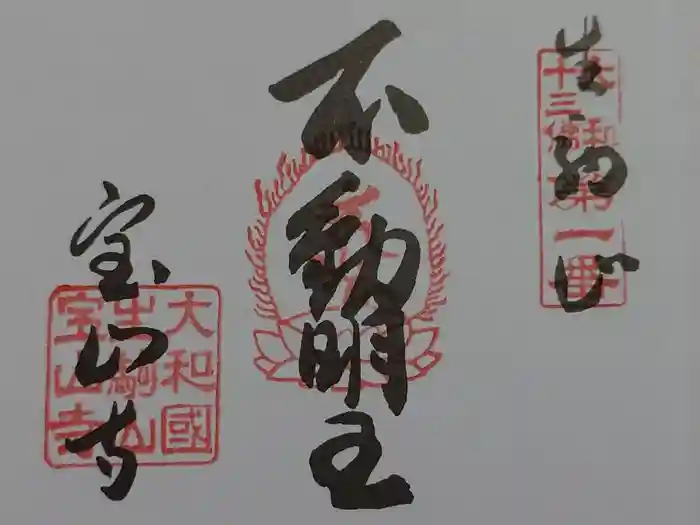 生駒山
大和
十三佛第一番
不動明王
宝山寺
大和國
生駒山
宝山寺